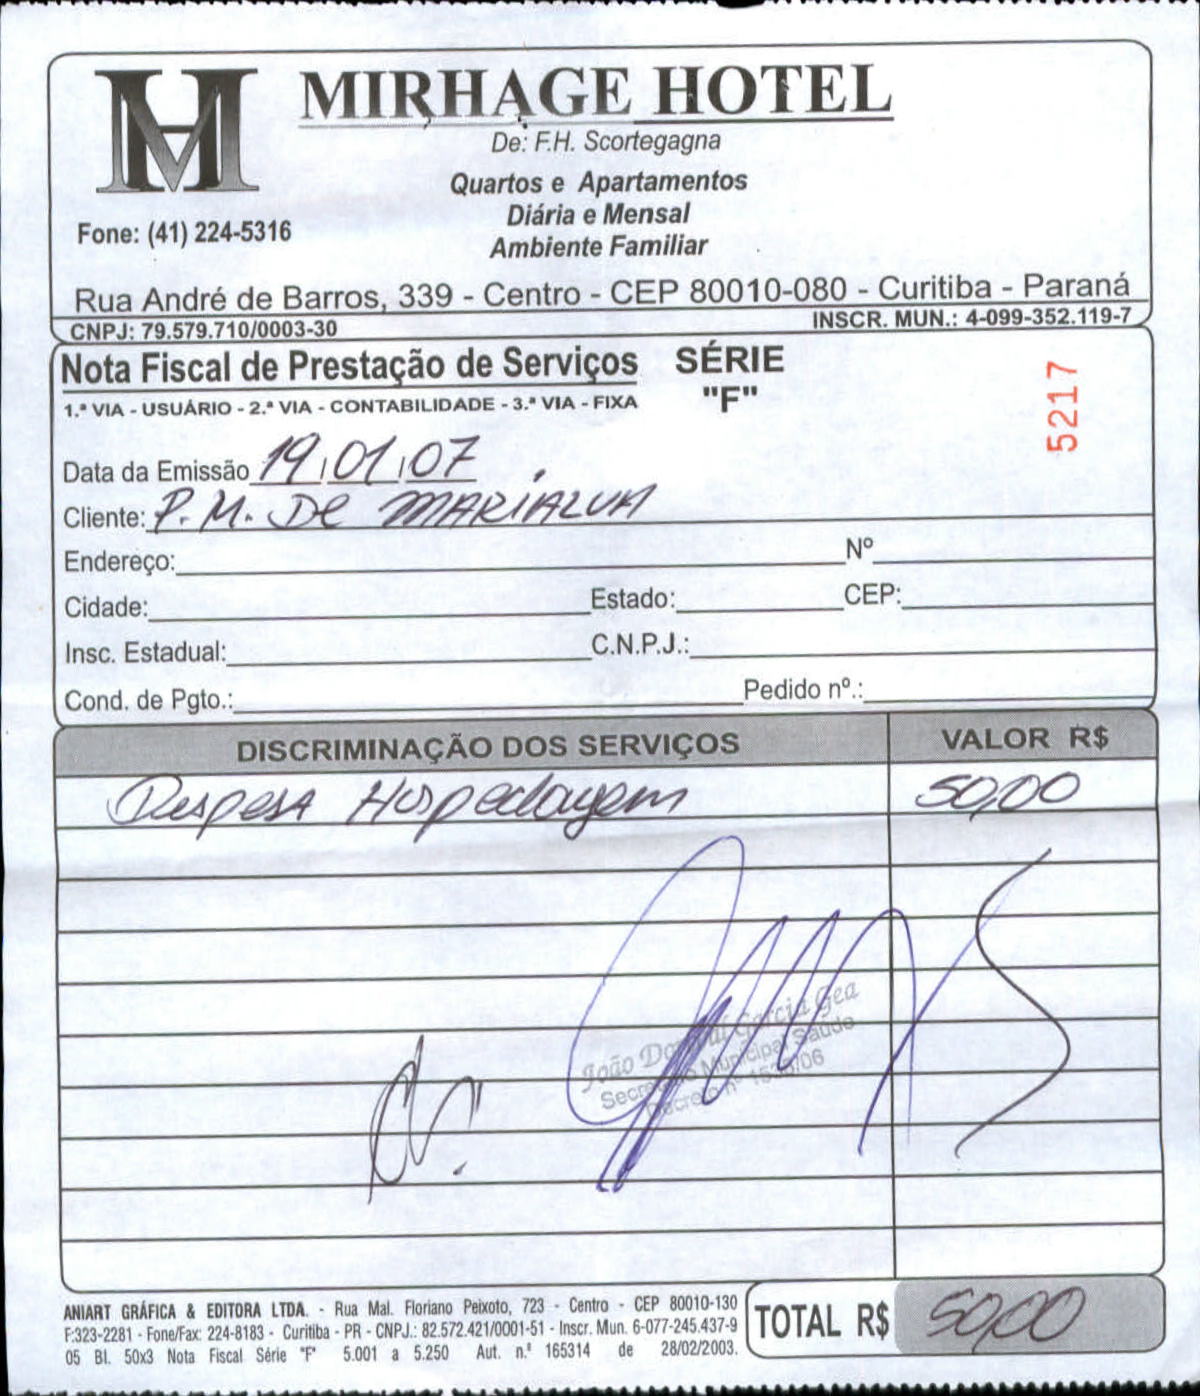 MIRHAGE HOTEL
De: F.H. Scortegagna
Quartos e Apartamentos
Diária e Mensal
Ambiente Familiar
Fone: (41) 224-5316
Rua André de Barros, 339 - Centro - CEP 80010-080 - Curitiba - Paraná
CNPJ: 79.579.710/0003-30 INSCR. MUN.: 4-099-352.119-7
Nota Fiscal de Prestação de Serviços SÉRIE
1.ª VIA - USUÁRIO - 2.ª VIA - CONTABILIDADE - 3.ª VIA - FIXA "F"
5217
Data da Emissão 19/01/07
Cliente: P.M. De MARIALVA
Endereço: Nº
Cidade: Estado: CEP:
Insc. Estadual: C.N.P.J.:
Cond. de Pgto.: Pedido nº.:
DISCRIMINAÇÃO DOS SERVIÇOS VALOR R$
Despesa Hospedagem 50,00
João Garcia Gea
Municipal Saúde
Decreto nº
ANIART GRÁFICA & EDITORA LTDA. - Rua Mal. Floriano Peixoto, 723 - Centro - CEP 80010-130
F:323-2281 - Fone/Fax: 224-8183 - Curitiba - PR - CNPJ.: 82.572.421/0001-51 - Inscr. Mun. 6-077-245.437-9
05 Bl. 50x3 Nota Fiscal Série "F" 5.001 a 5.250 Aut. n.º 165314 de 28/02/2003.
TOTAL R$ 50,00